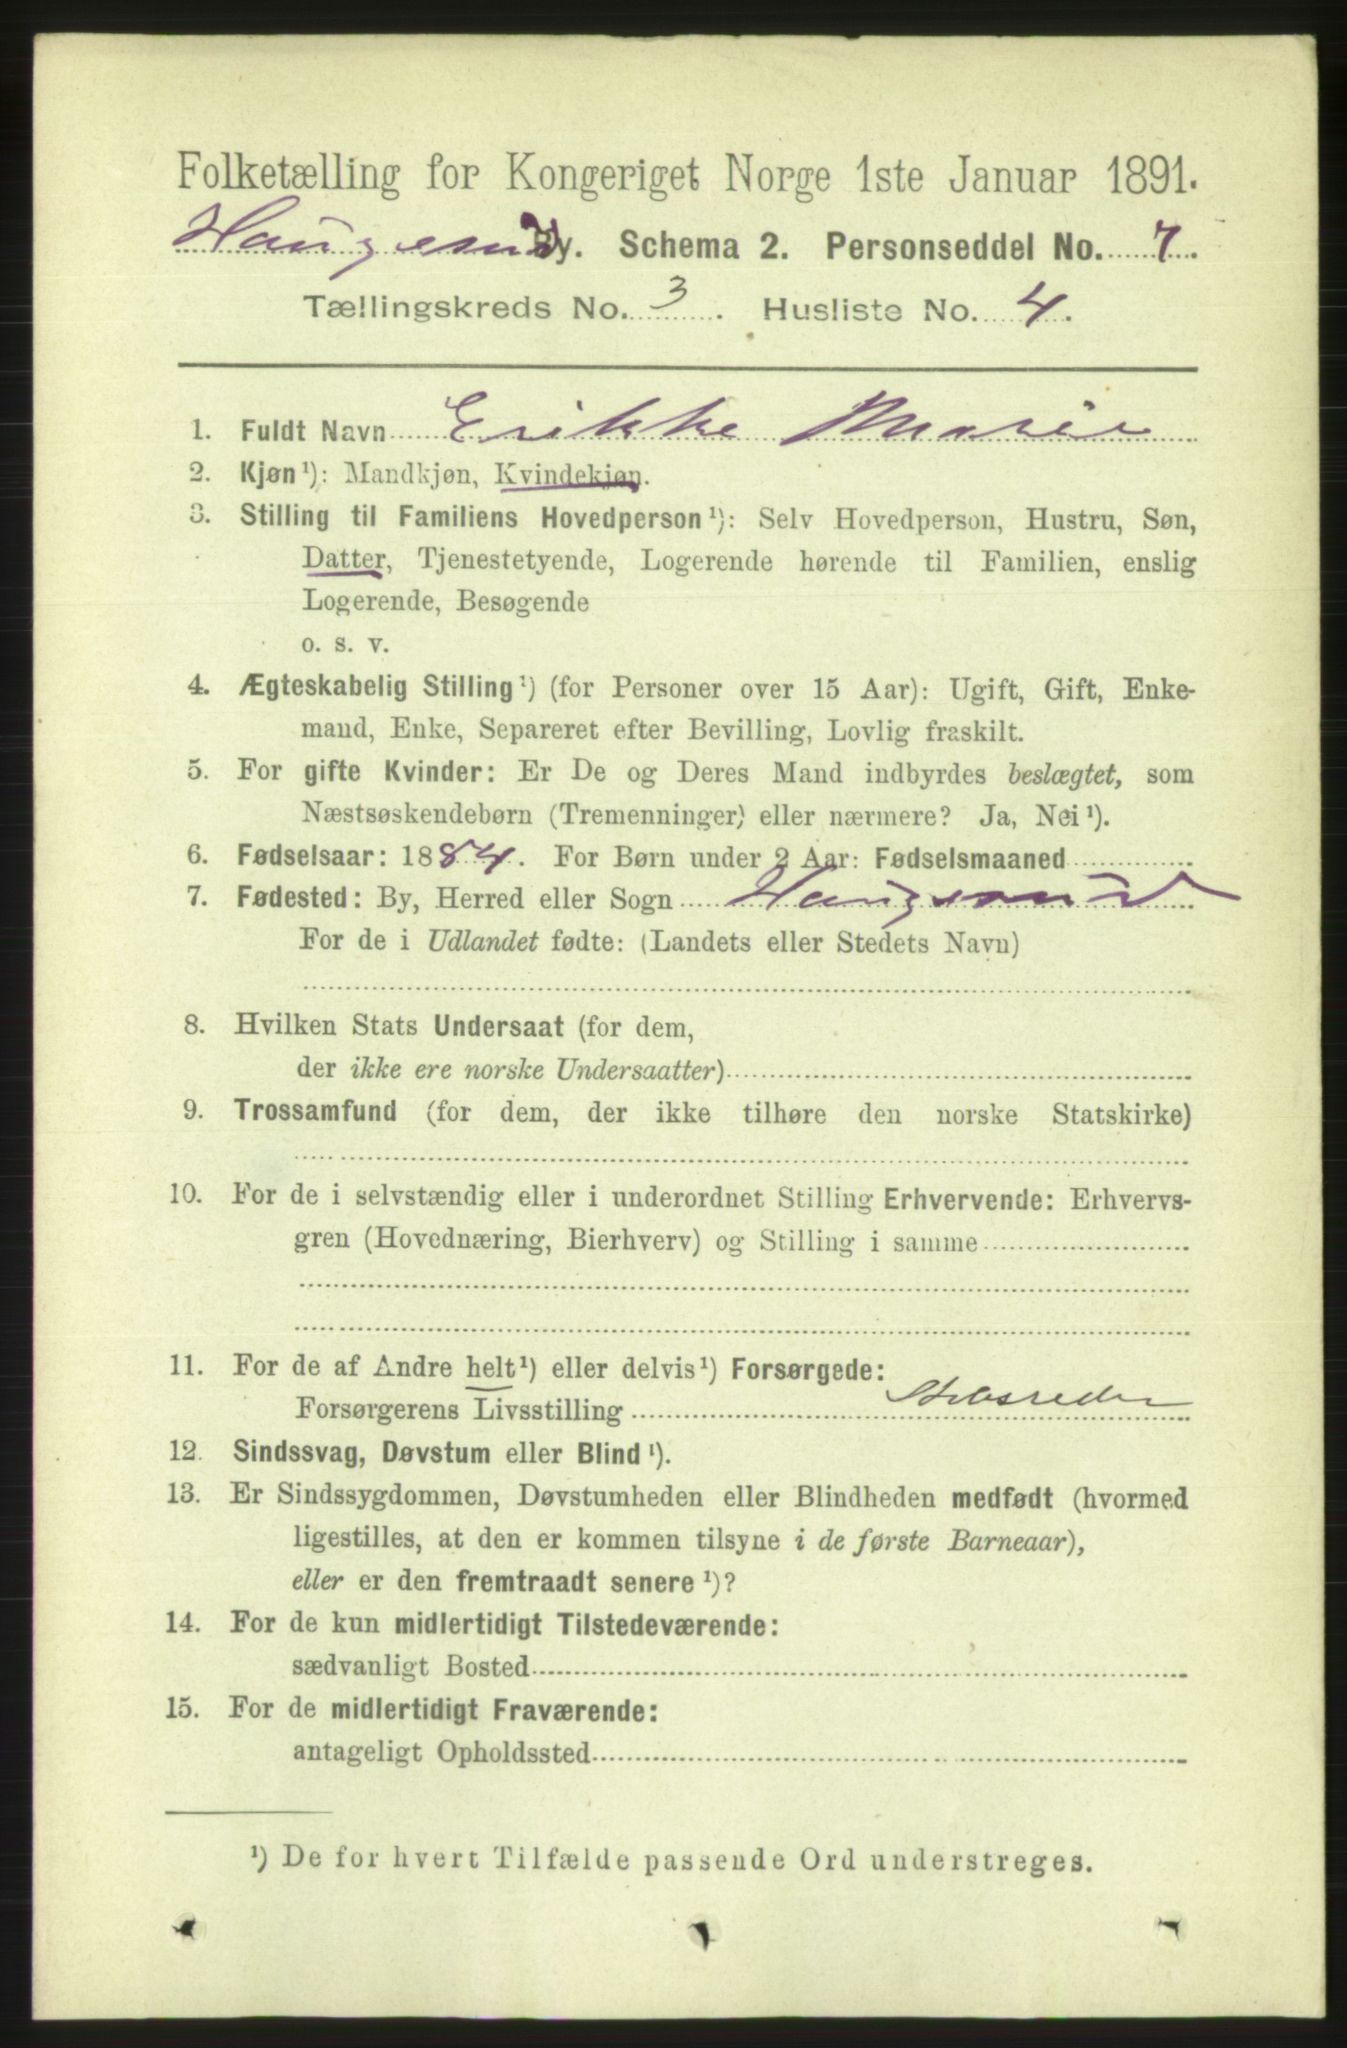 Folketælling for Kongeriget Norge 1ste Januar 1891.
Haugesund By. Schema 2. Personseddel No. 7.
Tællingskreds No. 3. Husliste No. 4.
1. Fuldt Navn Erikke Marie
2. Kjøn¹): Mandkjøn, Kvindekjøn.
3. Stilling til Familiens Hovedperson¹): Selv Hovedperson, Hustru, Søn,
Datter, Tjenestetyende, Logerende hørende til Familien, enslig
Logerende, Besøgende
o. s. v.
4. Ægteskabelig Stilling¹) (for Personer over 15 Aar): Ugift, Gift, Enke-
mand, Enke, Separeret efter Bevilling, Lovlig fraskilt.
5. For gifte Kvinder: Er De og Deres Mand indbyrdes beslægtet, som
Næstsøskendebørn (Tremenninger) eller nærmere? Ja, Nei¹).
6. Fødselsaar: 1884. For Børn under 2 Aar: Fødselsmaaned
7. Fødested: By, Herred eller Sogn Haugesund
For de i Udlandet fødte: (Landets eller Stedets Navn)
8. Hvilken Stats Undersaat (for dem,
der ikke ere norske Undersaatter)
9. Trossamfund (for dem, der ikke tilhøre den norske Statskirke)
10. For de i selvstændig eller i underordnet Stilling Erhvervende: Erhvervs-
gren (Hovednæring, Bierhverv) og Stilling i samme
11. For de af Andre helt¹) eller delvis¹) Forsørgede:
Forsørgerens Livsstilling Skibsreder
12. Sindssvag, Døvstum eller Blind¹).
13. Er Sindssygdommen, Døvstumheden eller Blindheden medfødt (hvormed
ligestilles, at den er kommen tilsyne i de første Barneaar),
eller er den fremtraadt senere¹)?
14. For de kun midlertidigt Tilstedeværende:
sædvanligt Bosted
15. For de midlertidigt Fraværende:
antageligt Opholdssted
¹) De for hvert Tilfælde passende Ord understreges.